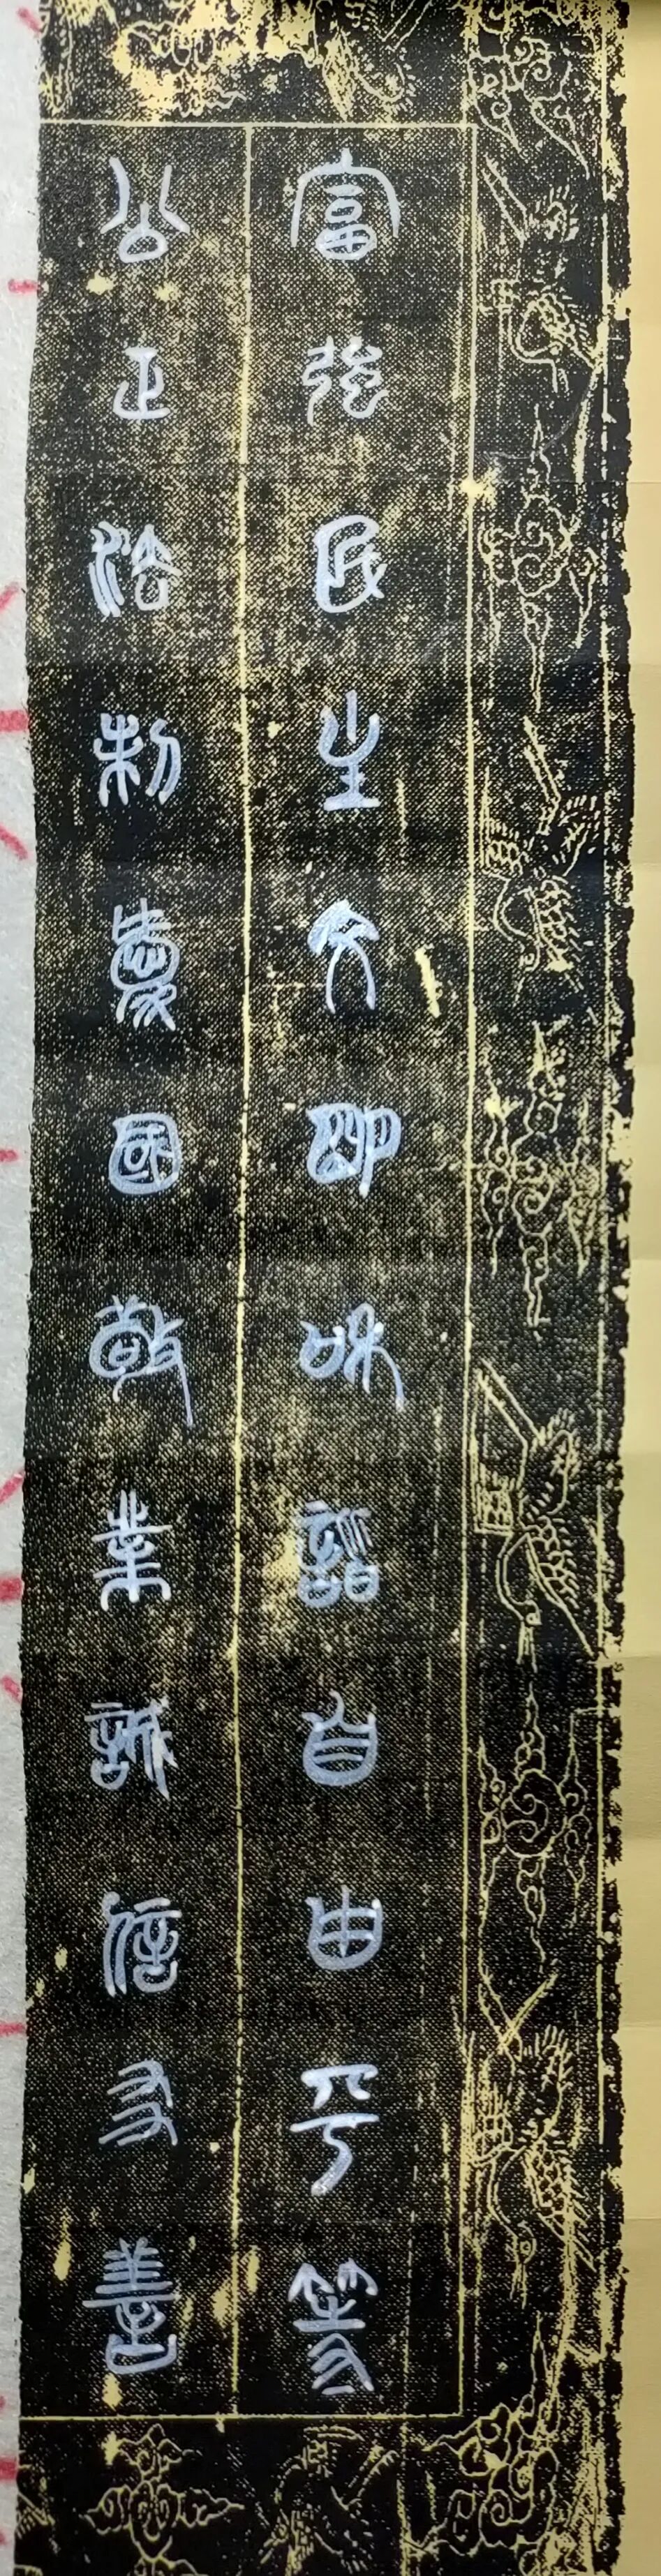 富強民主文明和諧自由平等
公正法制愛國敬業誠信友善